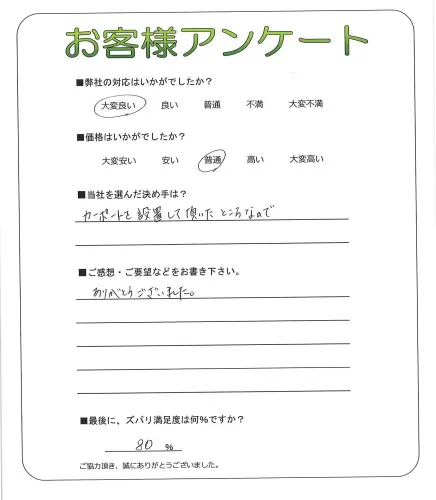 お客様アンケート
■弊社の対応はいかがでしたか？
大変良い 良い 普通 不満 大変不満
■価格はいかがでしたか？
大変安い 安い 普通 高い 大変高い
■当社を選んだ決め手は？
カーポートを設置して頂いたところなので
■ご感想・ご要望などをお書き下さい。
ありがとうございました。
■最後に、ズバリ満足度は何%ですか？
80 %
ご協力頂き、誠にありがとうございました。